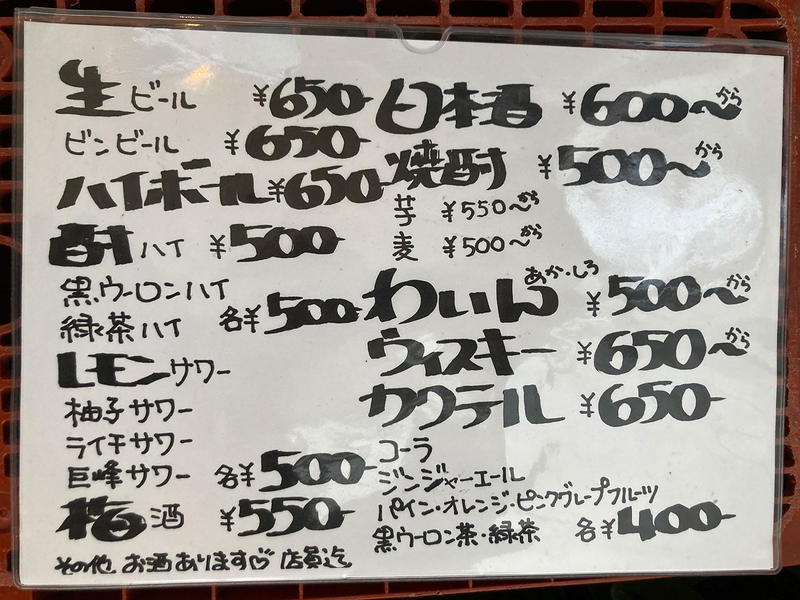 生ビール ¥650-
ビンビール ¥650-
ハイボール ¥650-
酎ハイ ¥500-
黒ウーロンハイ
緑茶ハイ 各¥500-
レモンサワー
柚子サワー
ライチサワー
巨峰サワー 各¥500-
梅酒 ¥550-
その他 お酒あります♡ 店員迄
日本酒 ¥600〜から
焼酎 ¥500〜から
芋 ¥550〜から
麦 ¥500〜から
わいん あか・しろ ¥500〜から
ウィスキー ¥650〜から
カクテル ¥650-
コーラ
ジンジャーエール
パイン・オレンジ・ピンクグレープフルーツ
黒ウーロン茶・緑茶 各¥400-